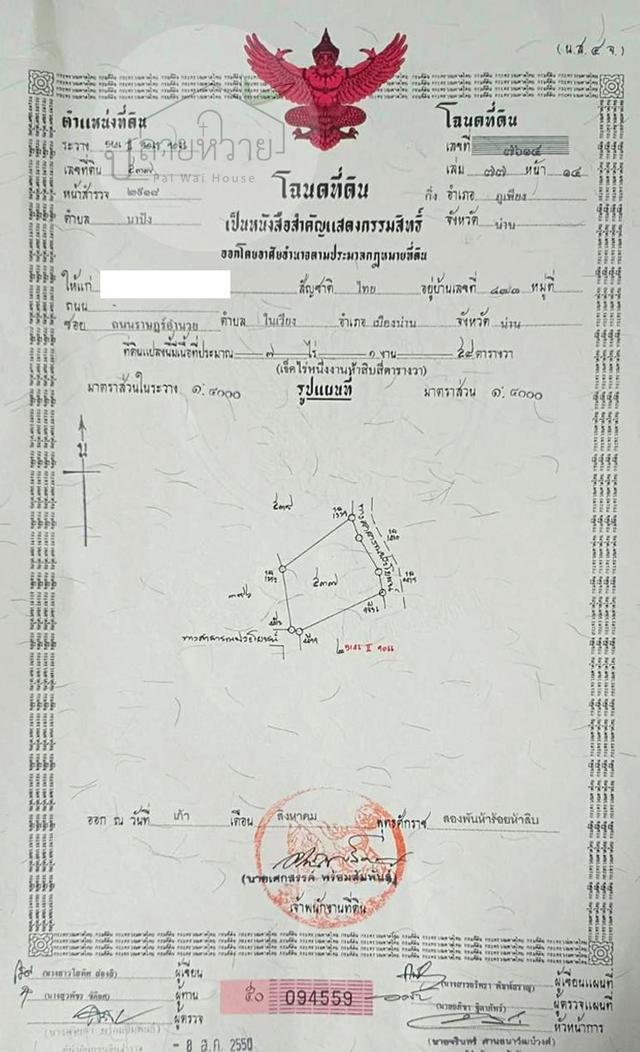 (น.ส. ๔ จ.)
ตำแหน่งที่ดิน
โฉนดที่ดิน
ระวาง
ปู่สายหวาย
Pai Wai House
เลขที่ ๗๖๑๔
เลขที่ดิน ๕๓๗
เล่ม ๗๗ หน้า ๑๔
หน้าสำรวจ ๒๙๑๘
โฉนดที่ดิน
กิ่ง อำเภอ ภูเพียง
ตำบล นาปัง
เป็นหนังสือสำคัญแสดงกรรมสิทธิ์
จังหวัด น่าน
ออกโดยอาศัยอำนาจตามประมวลกฎหมายที่ดิน
ให้แก่ สัญชาติ ไทย อยู่บ้านเลขที่ หมู่ที่
ถนน -
ซอย ถนนราษฎร์อำนวย ตำบล ในเวียง อำเภอ เมืองน่าน จังหวัด น่าน
ที่ดินแปลงนี้มีเนื้อที่ประมาณ ๗ ไร่ ๑ งาน ๕๔ ตารางวา
(เจ็ดไร่หนึ่งงานห้าสิบสี่ตารางวา)
มาตราส่วนในระวาง ๑:๔๐๐๐ รูปแผนที่ มาตราส่วน ๑:๔๐๐๐
น
ทางสาธารณประโยชน์
๕๓๗
ทางสาธารณประโยชน์
ออก ณ วันที่ เก้า เดือน สิงหาคม พุทธศักราช สองพันห้าร้อยห้าสิบ
(นายเศกสรรค์ พร้อมสัมพันธ์)
เจ้าพนักงานที่ดิน
ผู้เขียน
ผู้เขียนแผนที่
ผู้ทาน
ผู้ตรวจแผนที่
ผู้ตรวจ
หัวหน้าการ
๕๐ 094559
- 8 ส.ค. 2550